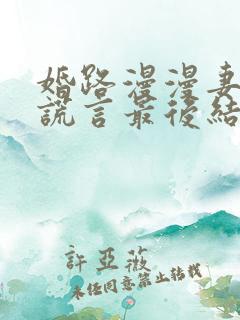 婚路漫漫妻
謊言最後結
許亞薇
未經同意禁止轉載